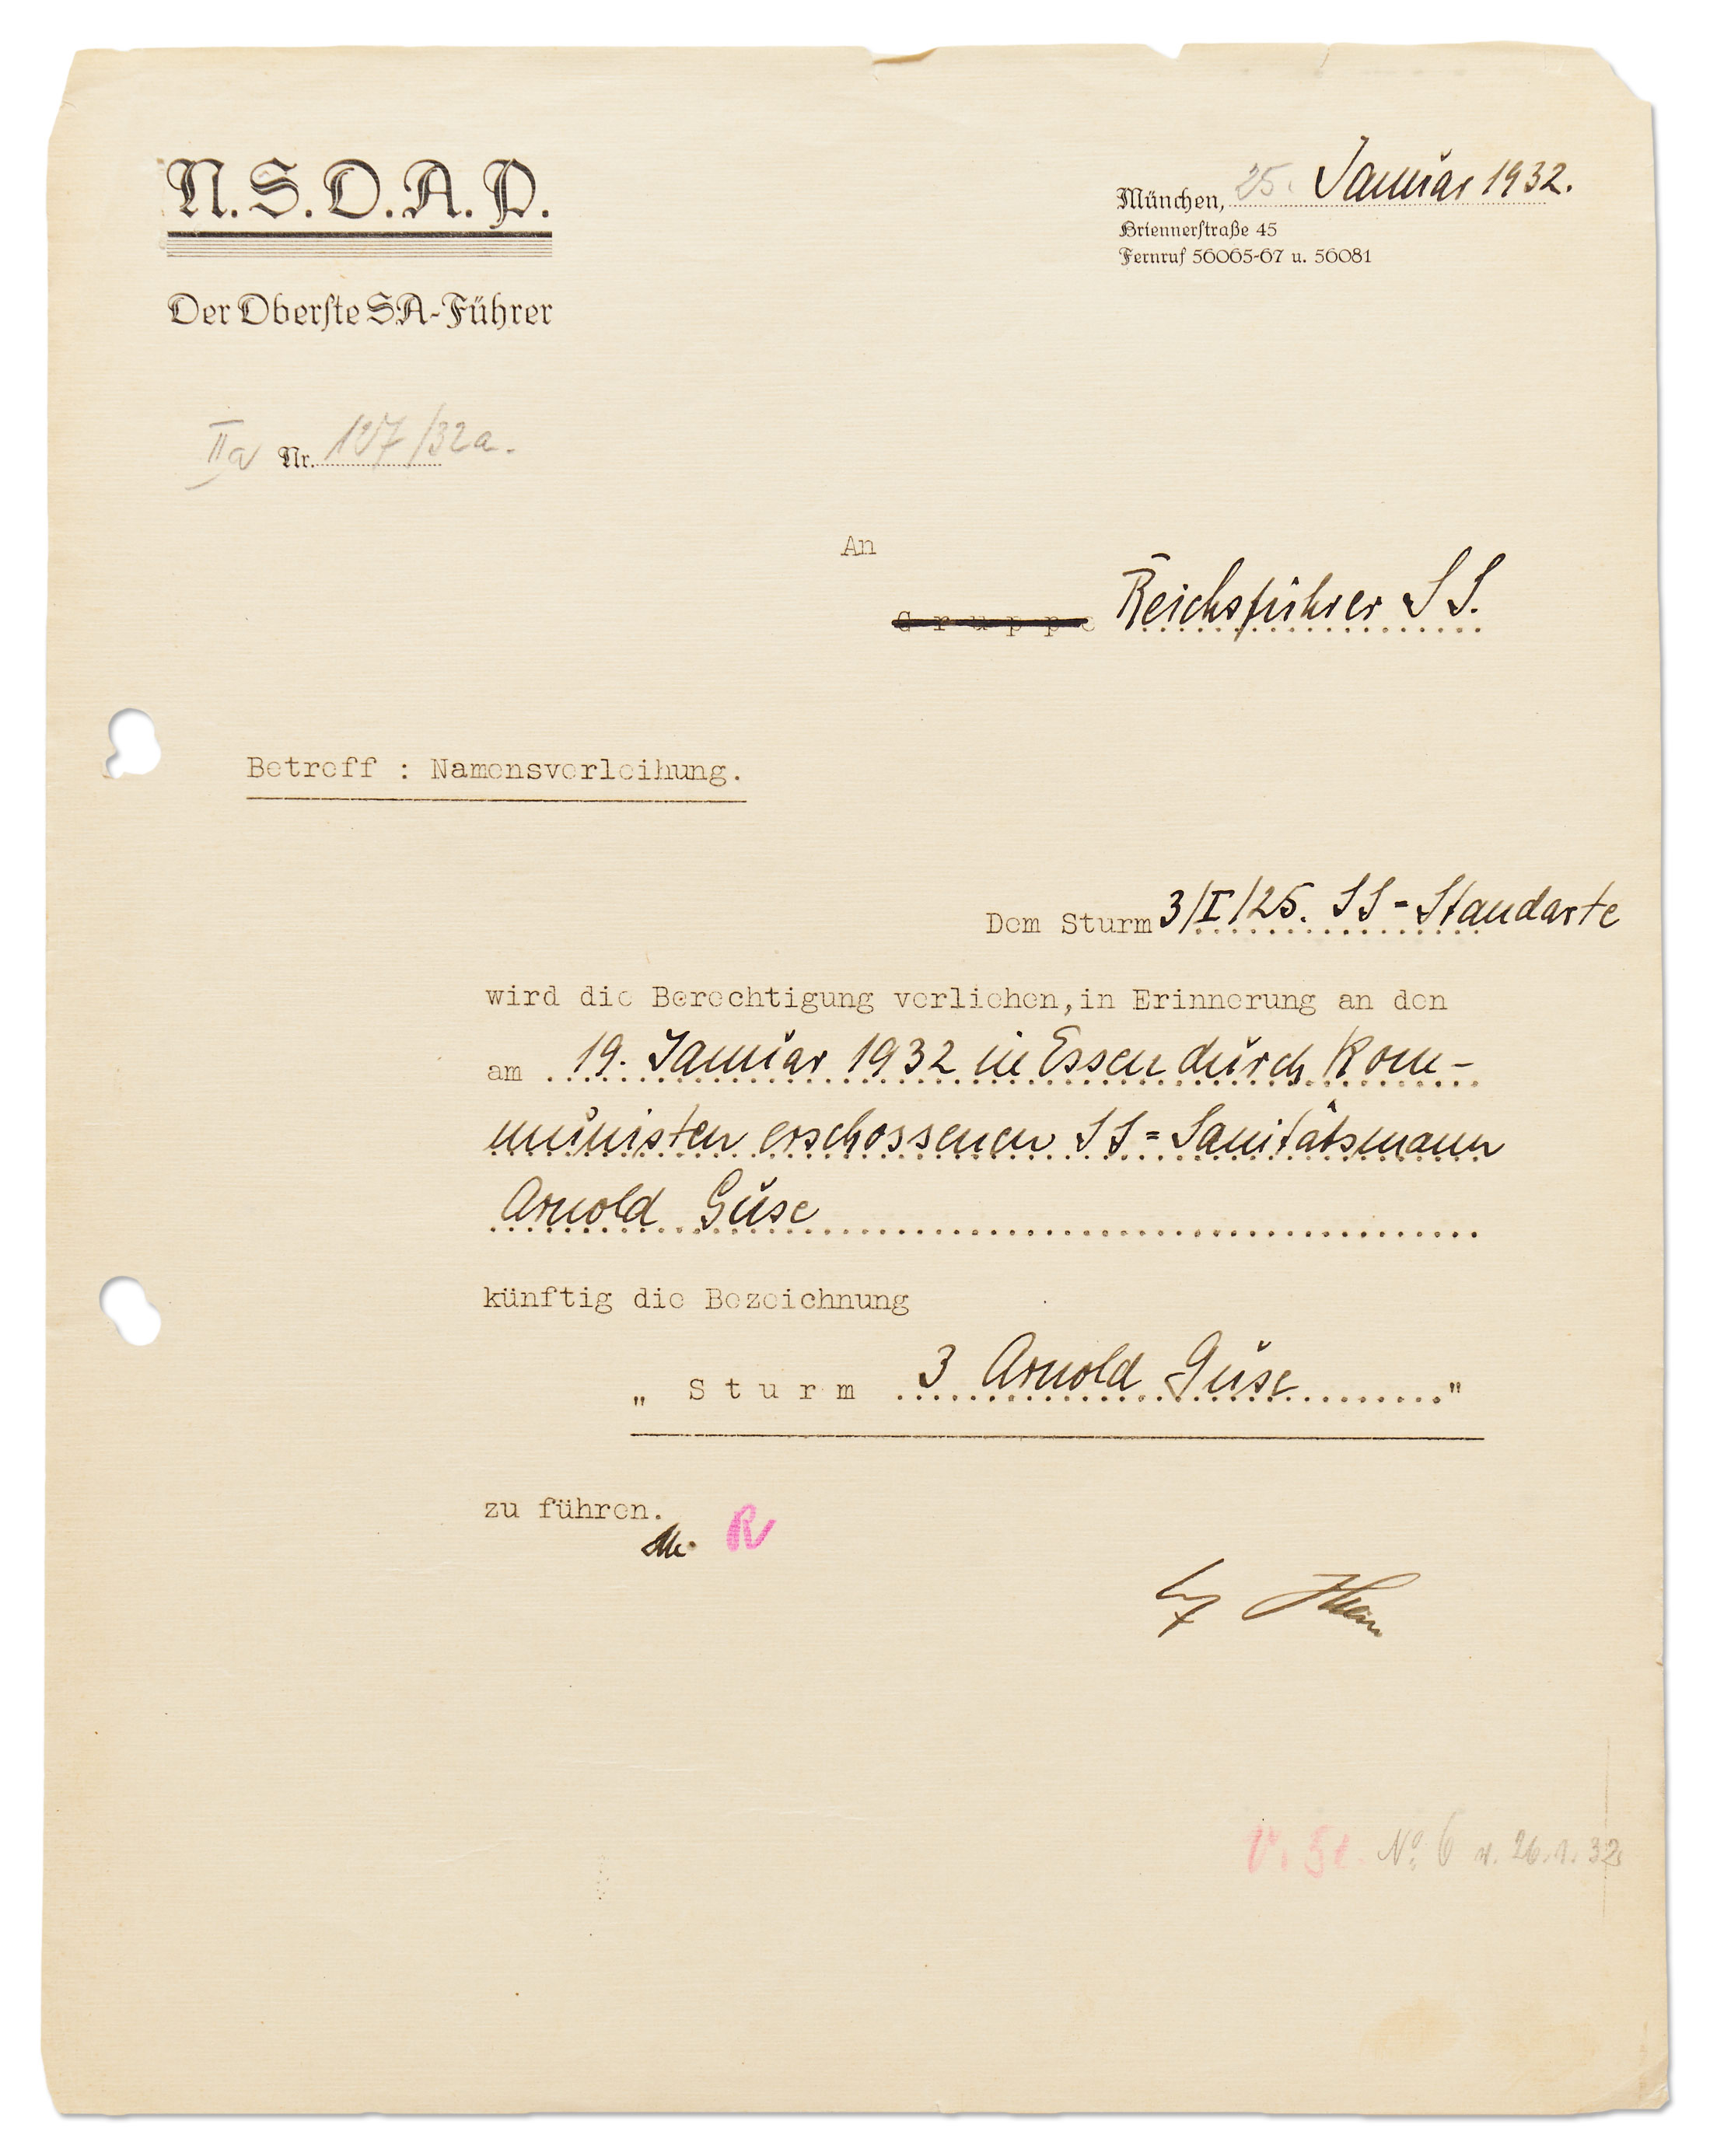 N.S.D.A.P.
Der Oberste SA-Führer
München, 25. Januar 1932.
Briennerstraße 45
Fernruf 56065-67 u. 56081
IIa Nr. 127/32a.
An
Gruppe Reichsführer SS.
Betreff : Namensverleihung.
Dem Sturm 3/I/25. SS-Standarte
wird die Berechtigung verliehen, in Erinnerung an den
am 19. Januar 1932 in Essen durch Kom-
munisten erschossenen SS=Sanitätsmann
Arnold Guse
künftig die Bezeichnung
„ S t u r m 3 Arnold Guse "
zu führen.
R
No. 6 v. 26.1.32